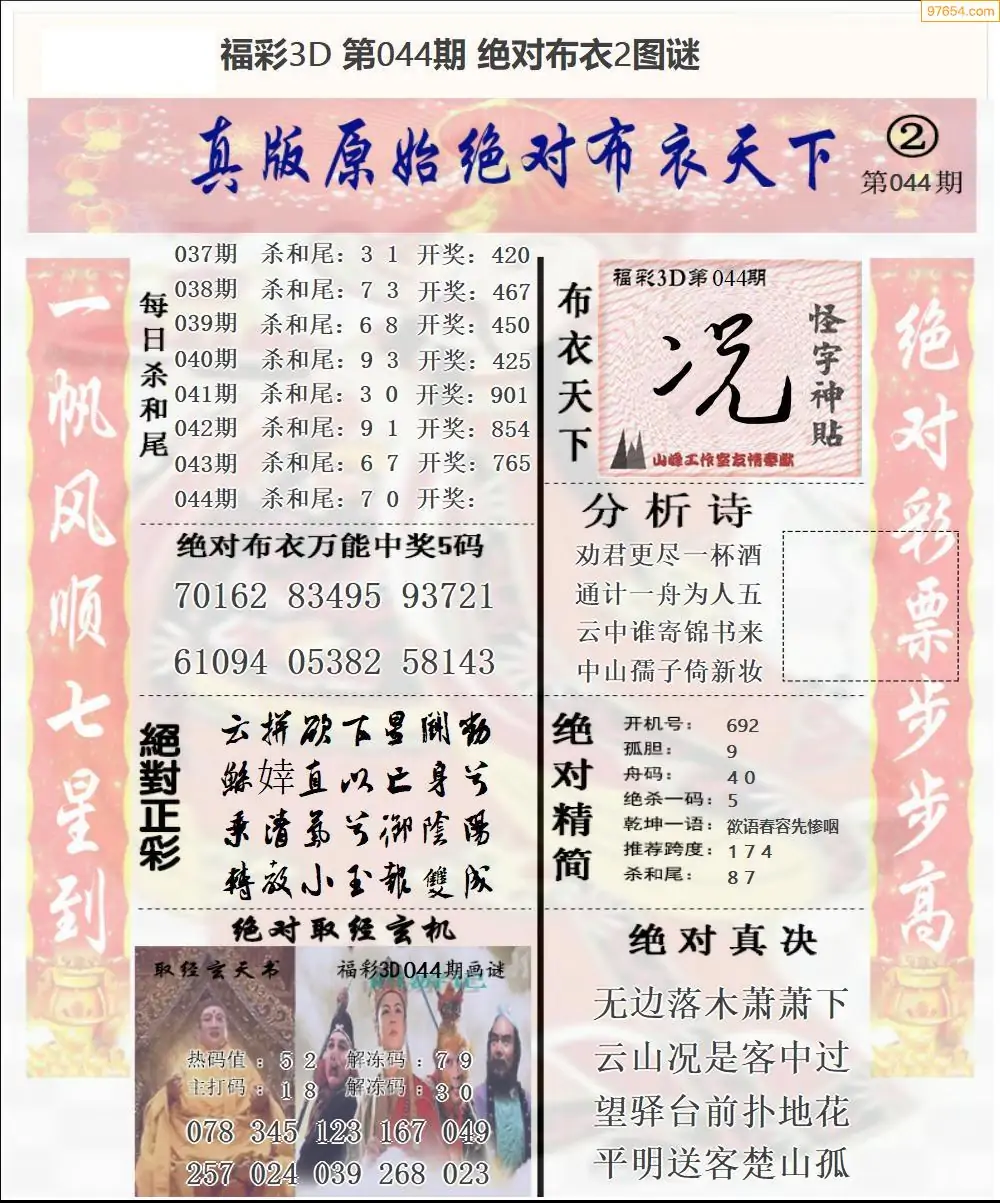 97654.com
福彩3D 第044期 绝对布衣2图谜
真版原始绝对布衣天下
②
第044期
一帆风顺七星到
每日杀和尾
037期 杀和尾: 3 1 开奖: 420
038期 杀和尾: 7 3 开奖: 467
039期 杀和尾: 6 8 开奖: 450
040期 杀和尾: 9 3 开奖: 425
041期 杀和尾: 3 0 开奖: 901
042期 杀和尾: 9 1 开奖: 854
043期 杀和尾: 6 7 开奖: 765
044期 杀和尾: 7 0 开奖:
绝对布衣万能中奖5码
70162 83495 93721
61094 05382 58143
絕對正彩
云拼欲下星斗动
鲧婞直以亡身兮
乘清氣兮御陰陽
轉教小玉報雙成
绝对取经玄机
取经玄天书
福彩3D044期画谜
热码值:5 2 解冻码:7 9
主打码:1 8 解冻码:3 0
078 345 123 167 049
257 024 039 268 023
布衣天下
福彩3D第044期
况
怪字神貼
山峰工作室友情奉献
分析诗
劝君更尽一杯酒
通计一舟为人五
云中谁寄锦书来
中山孺子倚新妆
绝对精简
开机号: 692
孤胆: 9
舟码: 4 0
绝杀一码: 5
乾坤一语: 欲语春容先惨咽
推荐跨度: 1 7 4
杀和尾: 8 7
绝对真决
无边落木萧萧下
云山况是客中过
望驿台前扑地花
平明送客楚山孤
绝对彩票步步高